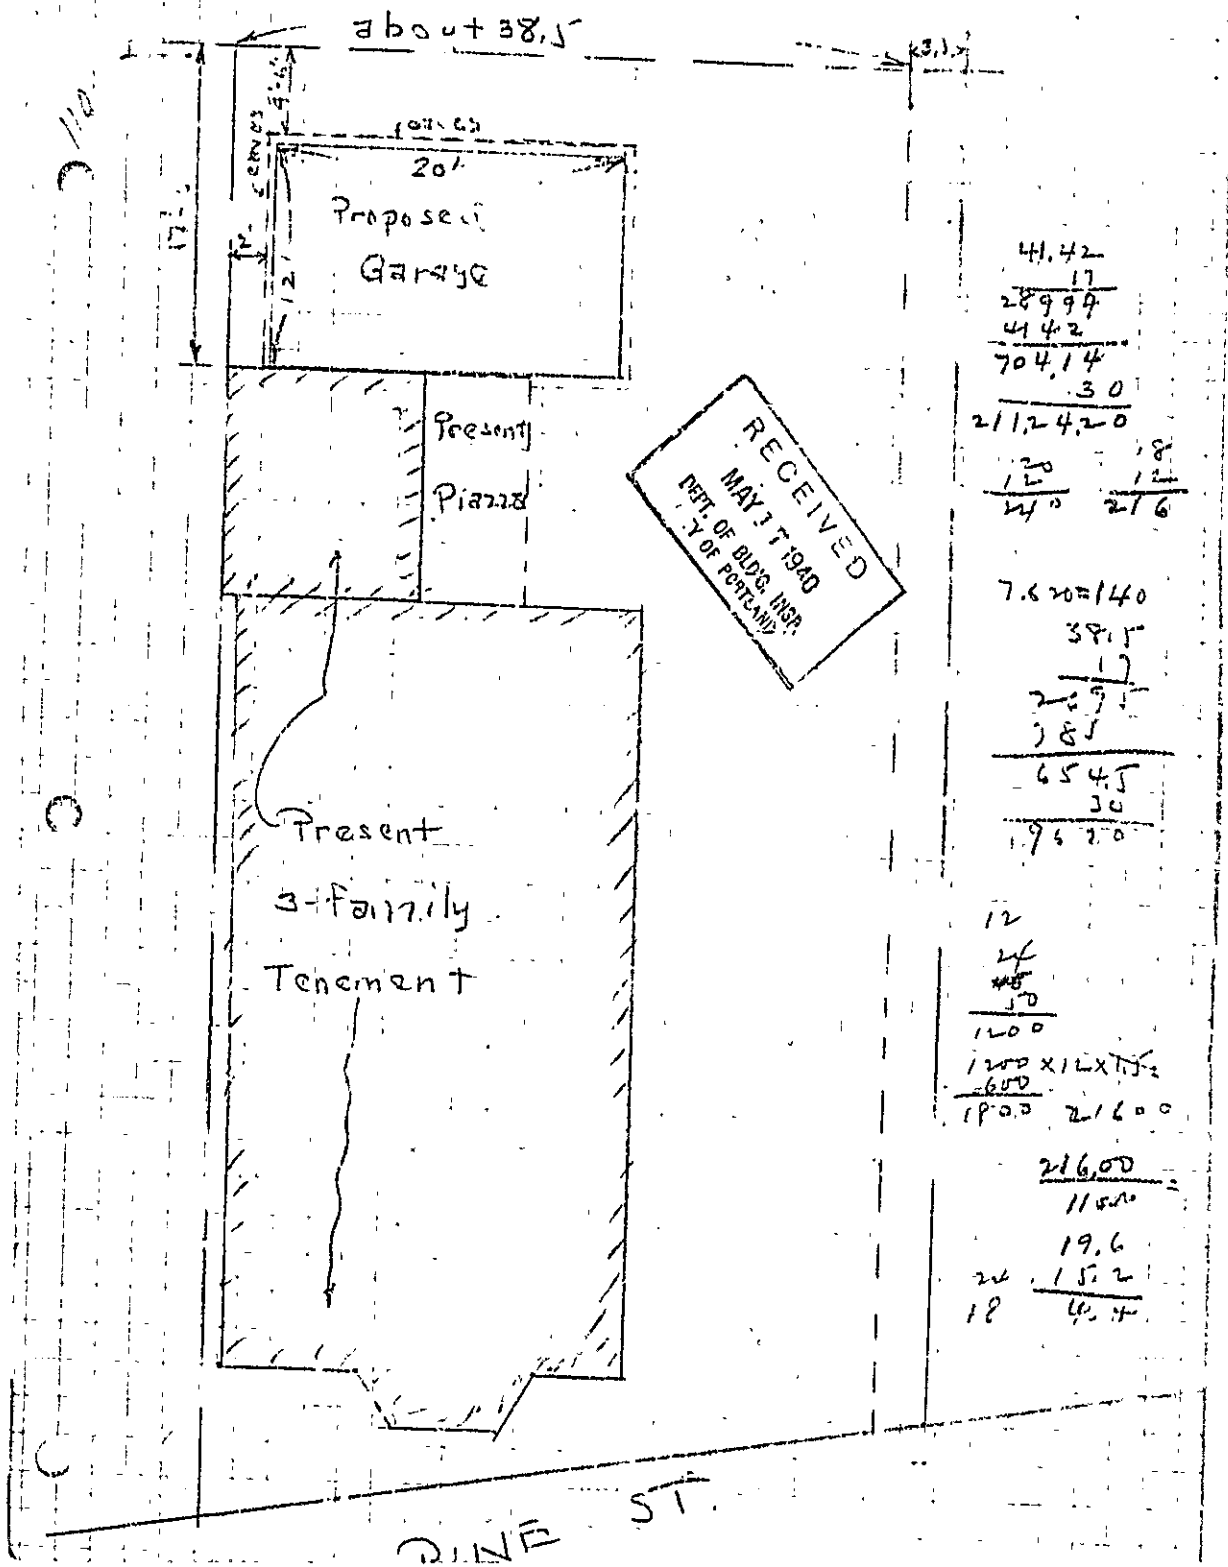 about 38.5
3.1
110
eaves
20'
12'
2'
Proposed
Garage
Present
Piazza
RECEIVED
MAY 1940
DEPT. OF BLD'G. INSP.
Y OF PORTLAND
Present
3-Family
Tenement
PINE ST.
41.42
17
28994
4142
704.14
.30
211.24.20
20
12
240
18
12
216
38.5
17
654.5
30
12
24
50
1200
1200 x 12 x 1.5=
600
1800 21600
216.00
19.6
24 15.2
18 4.4